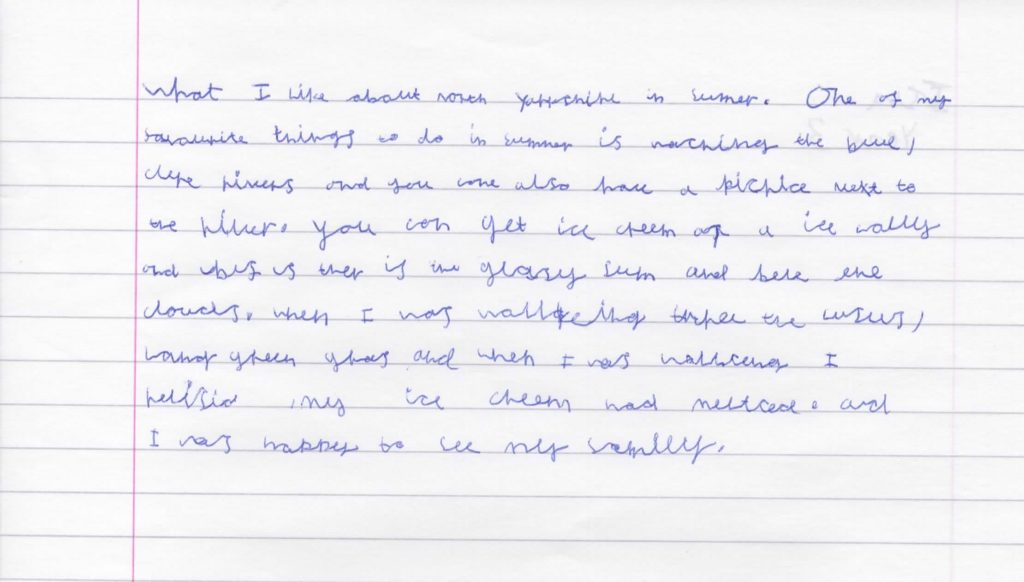 what I like about north yorkshire in sumer. One of my
favourite things to do in summer is waching the blue,
clere rivers and you cane also have a picnice next to
the river. you can get ice creem or a ice lolly
and is ther is the glasy sun and the
clouds. when I was the
green gras and when I was wallking I
my ice creem had meltced. and
I was happey to see my family.